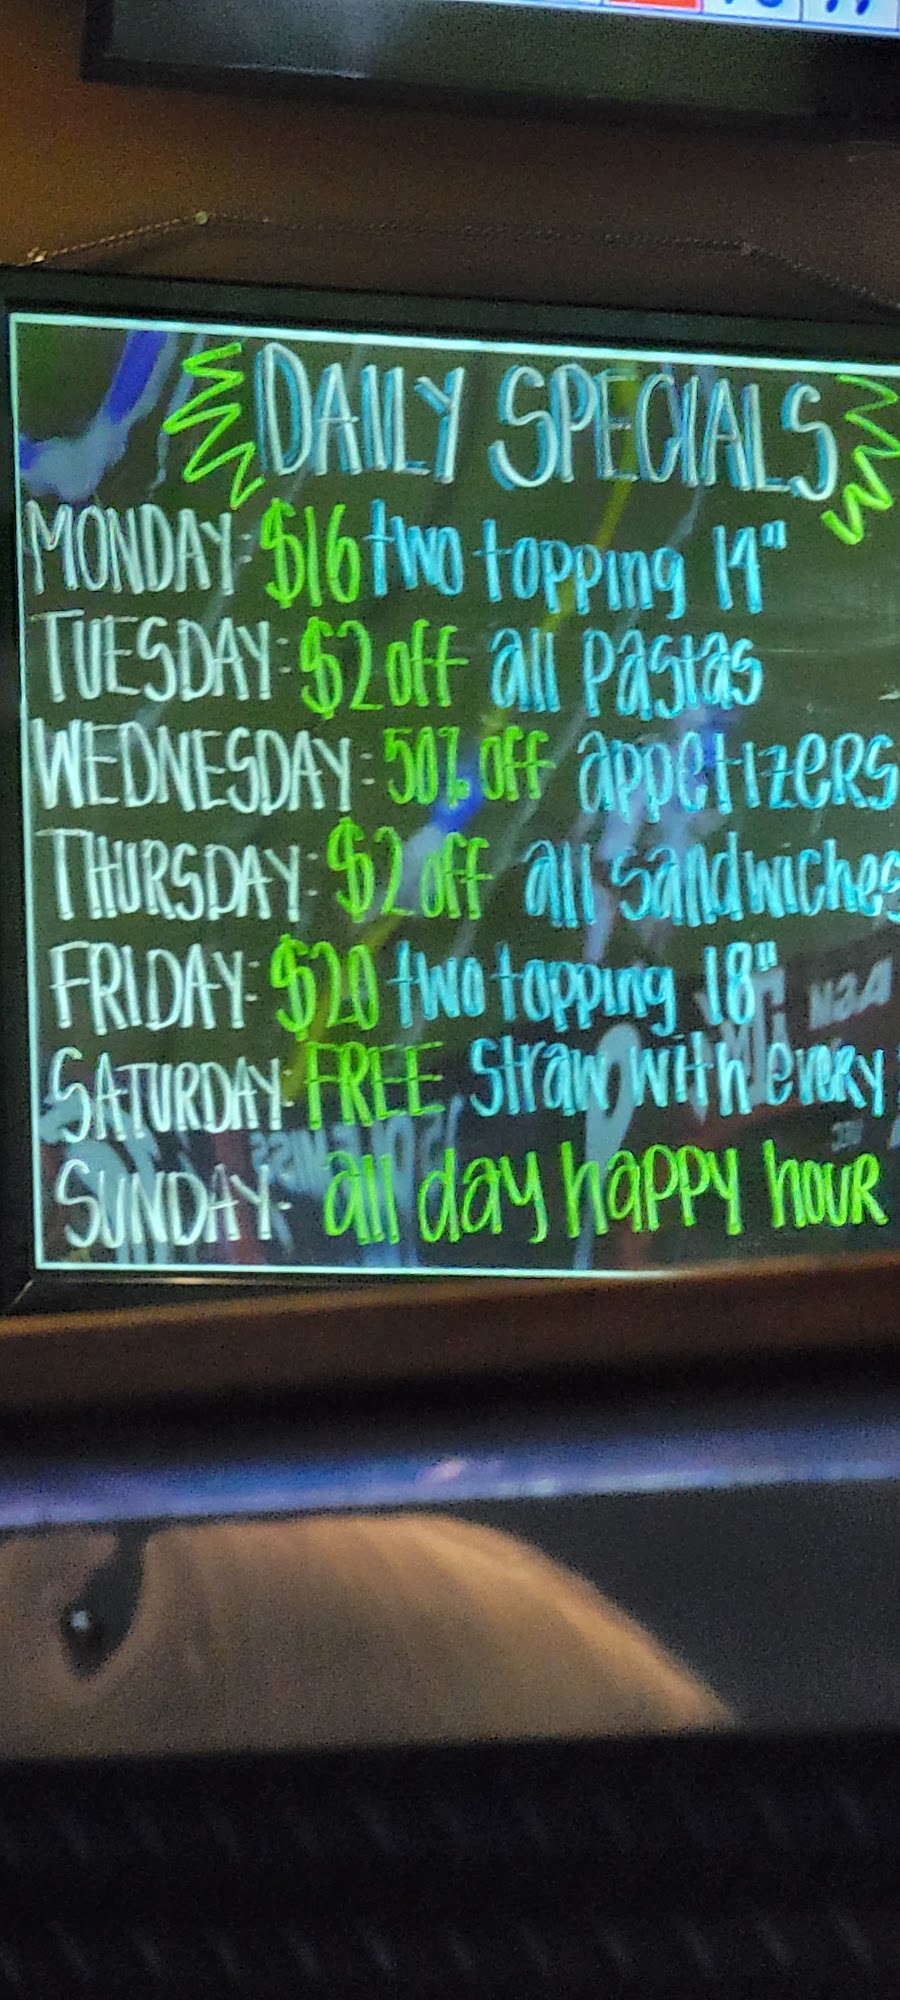 DAILY SPECIALS
MONDAY: $16 two topping 14"
TUESDAY: $2 off all pastas
WEDNESDAY: 50% off appetizers
THURSDAY: $2 off all sandwiches
FRIDAY: $20 two topping 18"
SATURDAY: FREE straw with every
SUNDAY: all day happy hour